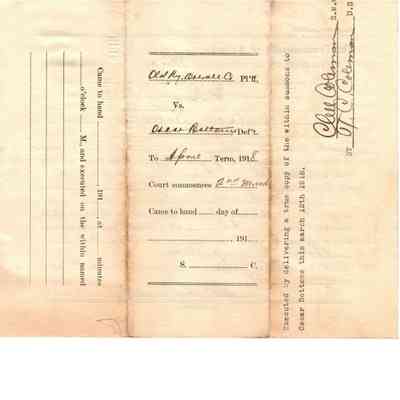 Came to hand 191 at minutes
o'clock M., and executed on the within named
Pl'ff.
Vs.
Oscar Bottoms Def't
To April Term, 1918
Court summonses 2nd Mond
Came to hand day of
, 191
S. C.
Executed by delivering a true copy of the within summons to
Oscar Bottoms this march 12th 1918.
Coleman
BY Coleman D.S.